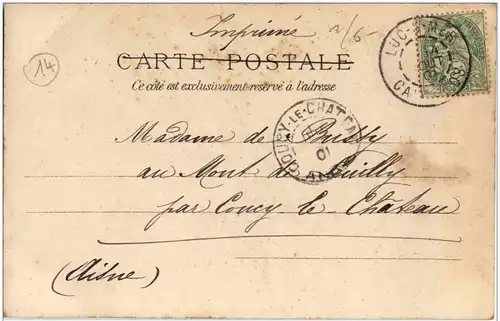 Imprimés
14
CARTE POSTALE
Ce côté est exclusivement réservé à l'adresse
COUCY-LE-CHATEAU
01
Madame de Bussy
au Mont de
par Coucy-le-Château
(Aisne)